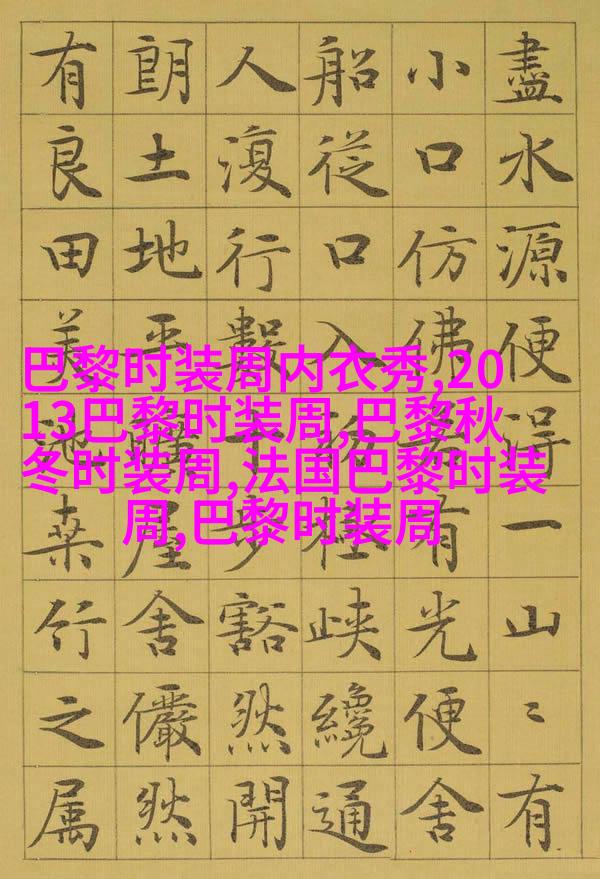 盡水源便得一山〻有
小口仿佛若有光便舍
船從口入初極峽纔通
人復行數十步豁然開
朗土地平曠屋舍儼然
有良田美池桑竹之属
巴黎时装周内衣秀,20
13巴黎时装周,巴黎秋
冬时装周,法国巴黎时装
周,巴黎时装周